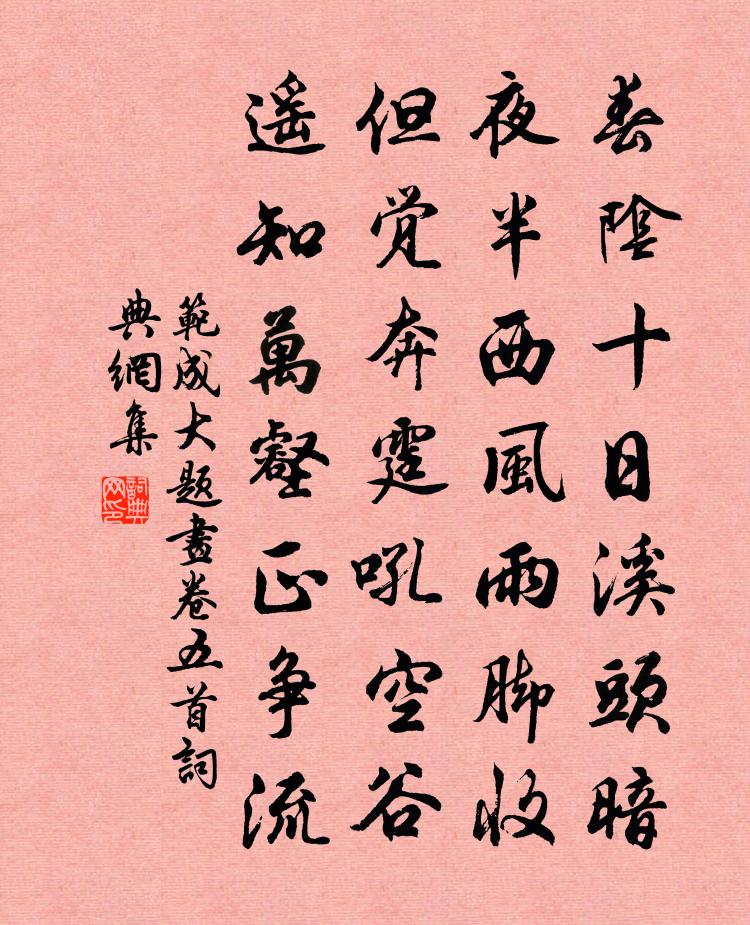 春陰十日溪頭暗
夜半西風雨脚收
但覺奔霆吼空谷
遥知萬壑正争流
範成大题畫卷五首詞
典網集
詞典
网印